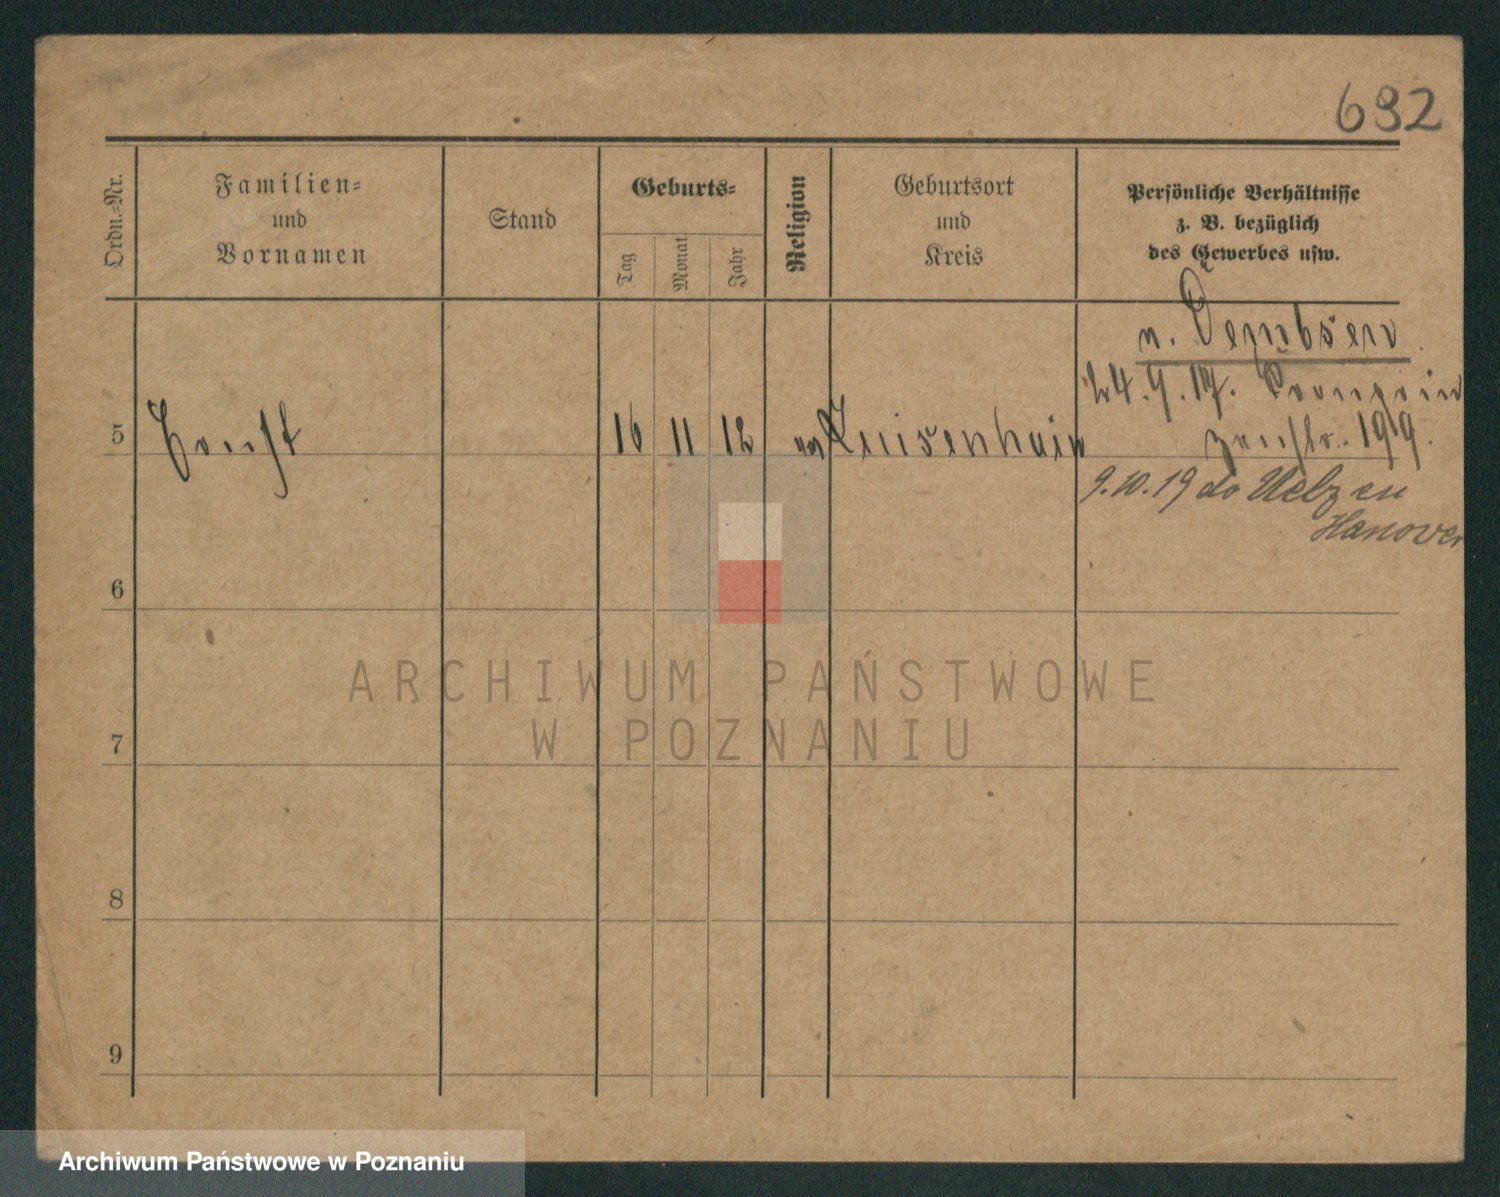 692
Ordn.-Nr.
Familien-
und
Vornamen
Stand
Geburts-
Tag
Monat
Jahr
Religion
Geburtsort
und
Kreis
Persönliche Verhältnisse
z. B. bezüglich
des Gewerbes usw.
n. Dembsen
24.9.17.
5 Ernst 16 11 12 ev Luisenhain
1919.
9.10.19 do Uelzen
Hanover
6
7
8
9
ARCHIWUM PAŃSTWOWE
W POZNANIU
Archiwum Państwowe w Poznaniu